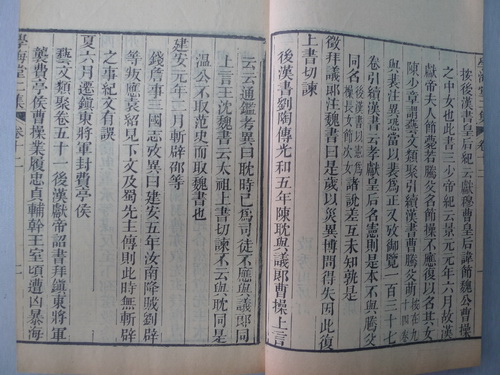 按後漢書獻帝紀云獻穆曹皇后諱節魏公曹操
之中女也此書三少帝紀云景元元年六月故漢
獻帝夫人節薨若騰父名節操不應復以名其女
陳少章謂藝文類聚引續漢書曹騰父萌按在九十四卷
與裴注異恐當以裴為正又攷御覽一百三十七
卷引續漢書云孝獻皇后名憲則是本不與騰父
同名後漢書以憲為操長女節次女諸說差互未知孰是
徵拜議郎注魏書曰是歲以災異博問得失因此復
上書切諫
後漢書劉陶傳光和五年陳耽與議郎曹操上言
云云通鑑考異曰耽時已爲司徒不應與議郎同
上言王沈魏書云太祖上書切諫不云與耽同是
溫公不取范史而取魏書也
建安元年二月斬辟邵等
錢詹事三國志攷異曰建安五年汝南降賊劉辟
等叛應袁紹見下文及蜀先主傳則此時無斬辟
之事紀文有誤
夏六月遷鎮東將軍封費亭侯
藝文類聚卷五十一後漢獻帝詔書拜鎮東將軍
襲費亭侯曹操業履忠貞輔幹王室頃遭凶暴海
學海堂二集 卷十一